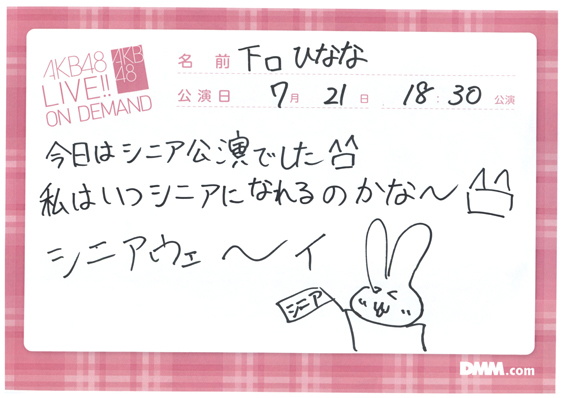 AKB48
LIVE!!
ON DEMAND
AKB
48
名前 下口ひなな
公演日 7月21日 18:30公演
今日はシニア公演でした
私はいつシニアになれるのかな〜
シニアウェ〜イ
シニア
DMM.com